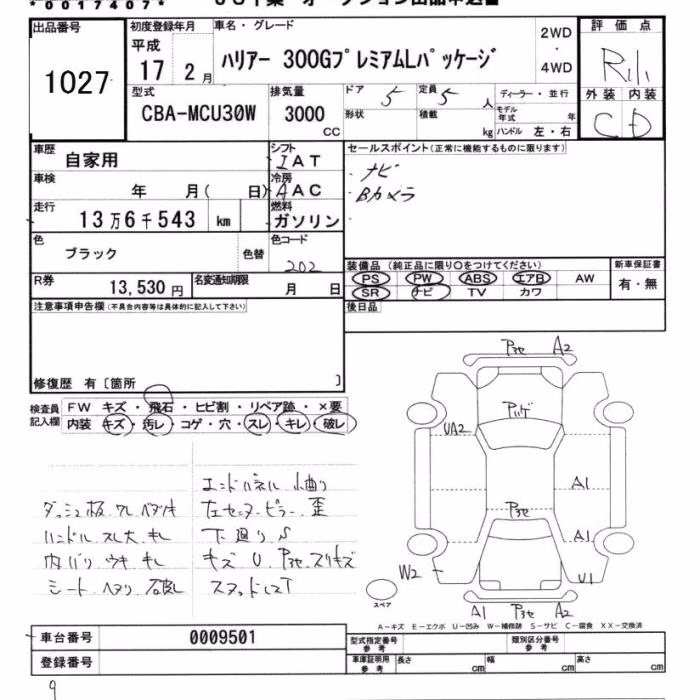 *0017407*
出品番号
1027
初度登録年月
平成
17 2月
車名・グレード
ハリアー 300GプレミアムLパッケージ
2WD
・
4WD
評価点
外装 内装
C D
型式
CBA-MCU30W
排気量
3000
CC
ドア
5
定員
5 人
形状
積載
kg
ディーラー・並行
モデル年式 年
ハンドル 左・右
車歴
自家用
シフト
IAT
車検
年 月( 日)
冷房
AAC
走行
13万6千543 km
燃料
ガソリン
色
ブラック
色替
色コード
202
R券
13,530 円
名変通知期限
月 日
セールスポイント(正常に機能するものに限ります)
・ナビ
・Bカメラ
・
装備品 (純正品に限り○をつけてください)
PS PW ABS エアB AW
SR ナビ TV カワ
新車保証書
有・無
後日品
注意事項申告欄(不具合内容等は具体的に記入して下さい)
修復歴 有〔箇所 〕
検査員記入欄
FW キズ・飛石・ヒビ割・リペア跡・×要
内装 キズ・汚レ・コゲ・穴・スレ・キレ・破レ
エンドパネル 小曲り
ハンドル スレ大 キレ
左センターピラー 歪
内バリ ウキ キレ
下廻り S
キズ U Pヨセ スリキズ
P3セ A2
UA2
A1
P3セ
A1
W2
U1
スペア
A1 P3セ A2
A-キズ E-エクボ U-凹み W-補修跡 S-サビ C-腐食 XX-交換済
車台番号
0009501
登録番号
型式指定番号
参考
類別区分番号
参考
車庫証明用
参考
長さ cm
幅 cm
高さ cm
9